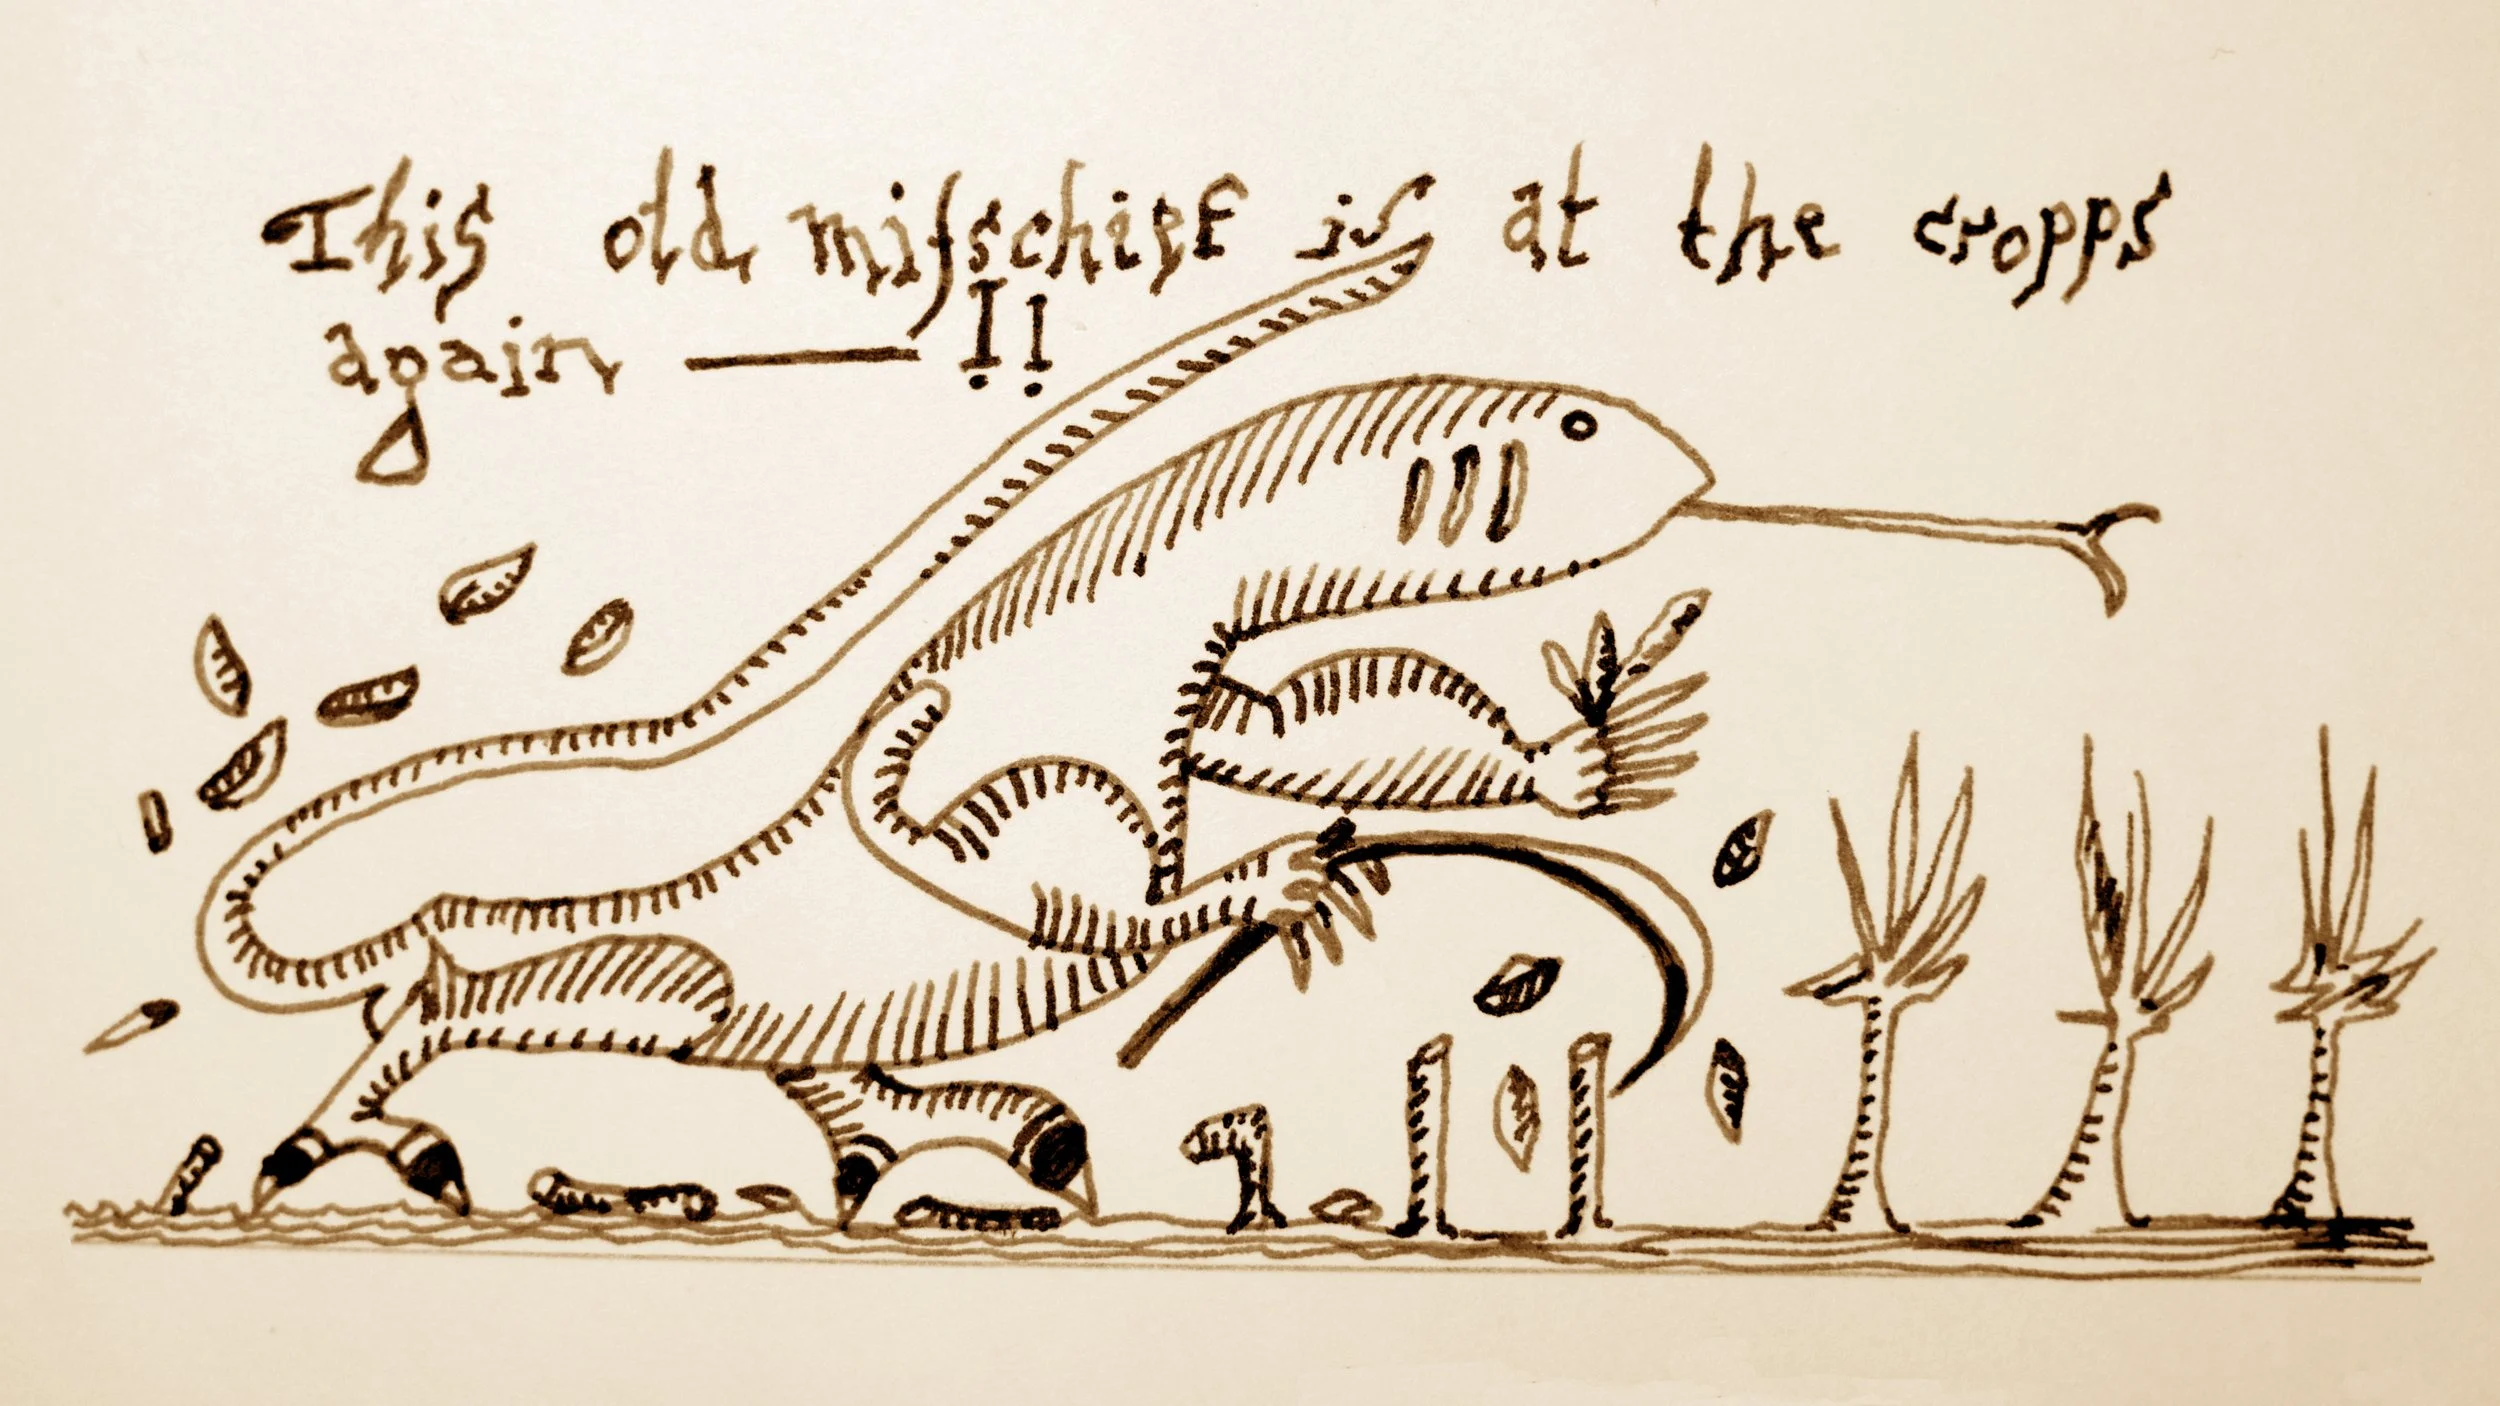 This old mifschief is at the cropps
again — !!